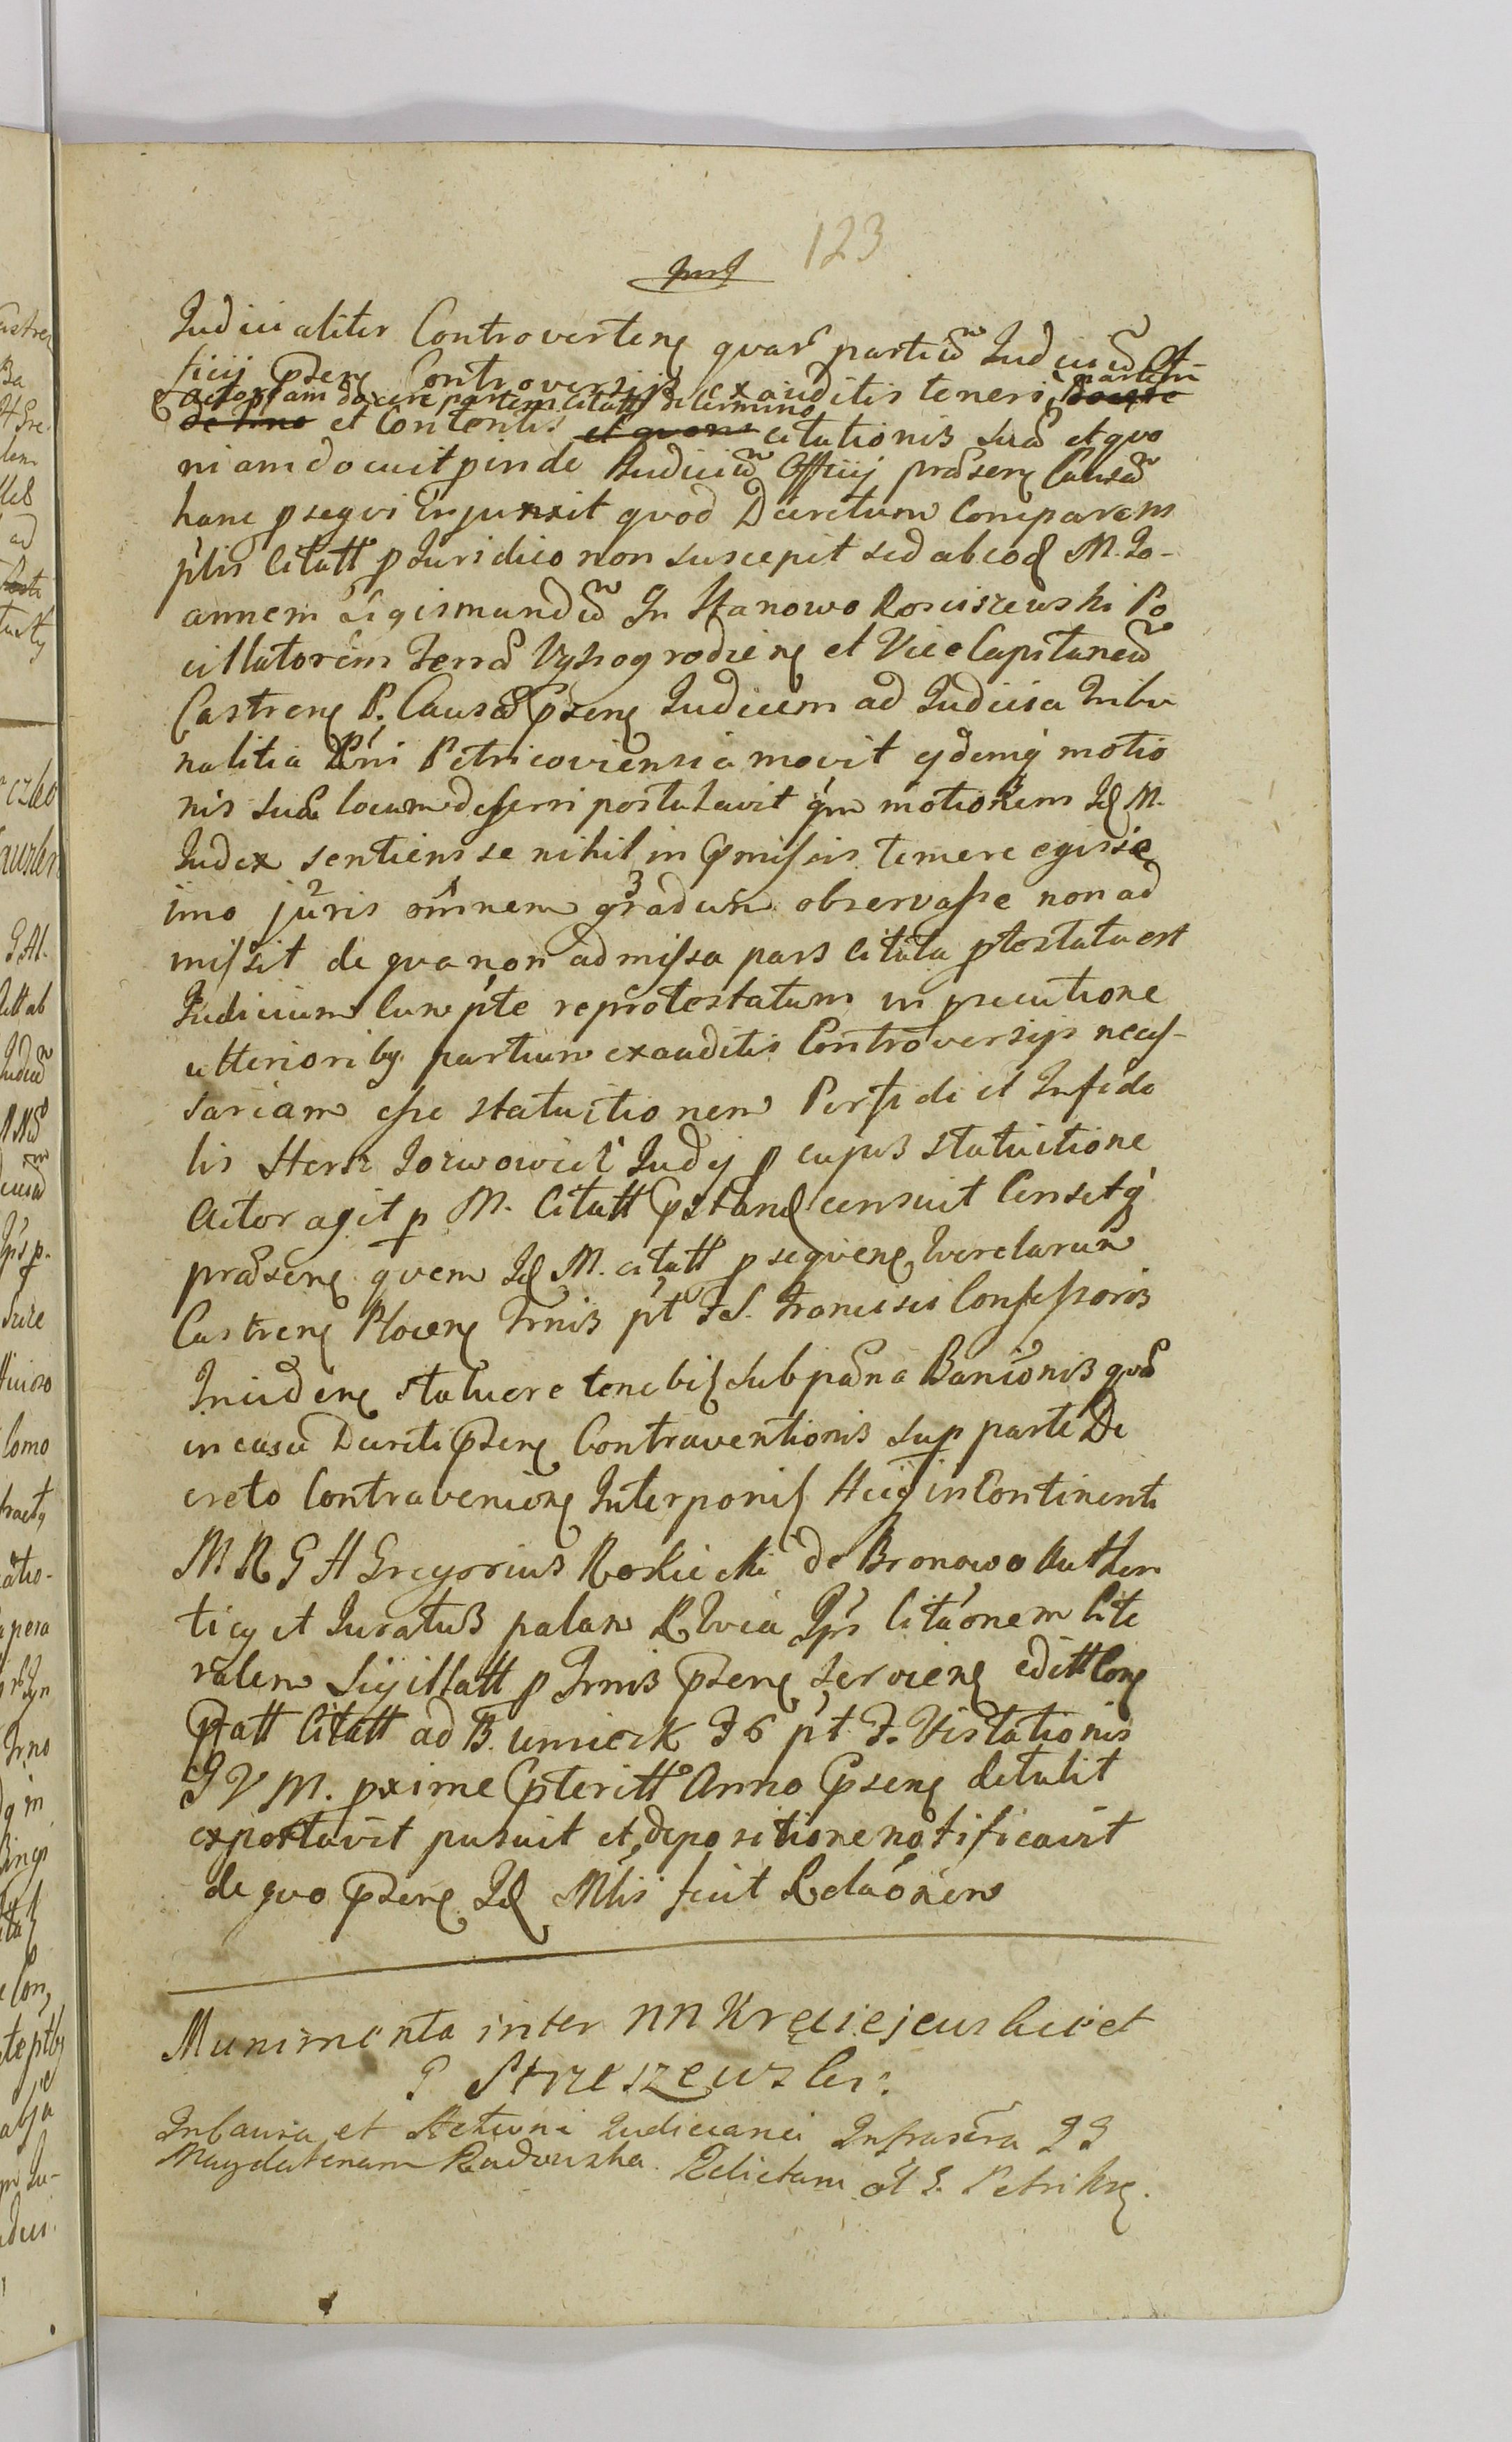 123
Judicialiter Controverten quar partiũ Judiciũ Of-
ficij Pzen Controversijs exauditis teneri partem docere
actoream docere partem citatt de termino
de tmo et Contentis et quoni citationis suæ et quo
niam docuit pinde Judiciũ Officij præsen Causã
hanc psequi Enjunxit quod Decretum Comparens
pñs Citatt p Juridico non suscepit sed ab eod M. Jo-
annem Sigismundũ In Stanowo Rosciszewski Po
cillatorem Terræ Vyszogrodien et Vice Capitaneũ
Castren P. Causæ Pzen Judicem ad Judicia Tribu
nalitia Rni Petricoviensia movit ejdemq motio
nis suæ locum deferri postulavit qm motionem Id M.
Judex sentiens se nihil in Pmissis temere egisse
imo juris omnem gradum observasse non ad
missit de qua non admissa pars citata ptestatu est
Judicium cum pte reprotestatum in psecutione
ulteriorib partium exauditis Controversijs neces-
sariam esse statuitionem Perfidi et Infide
lis Hersz Jozwowicz Judej p cujus statuitione
Actor agit p M. Citatt Pstand censuit Censetq
præsen quem Id M. citatt p sequen querelarum
Castren Plocen Trnis pt F S. Francisci Confessoris
Inciden statuere tenebit sub pæna Banionis quæ
in casu Decreti Pzen Contraventionis sup parte De
creto Contravenien Interponit Hicq in Continenti
M R G H Gregorius Rokicki de Bronowo Authen
ticq et Juratus palam R Luca Ipi Citaonem Lite
ralem Sigillatt p Trnis Pzen servien edittCon
Pzatt Citatt ad B. umieck F 6 pt F. Visitationis
G V M. pxime Pteritt Anno Pzen detulit
exportavit pusuit et depositione notificavit
de quo Pzen Id Mlis fecit Relaonem
Munimenta inter NN Kręciejewskie et
G Strzeszewski.
In Causa et Actioni Judiciarie Infrascra GG
Magdalenam Radowska Relictam ol G. Petri Krę.